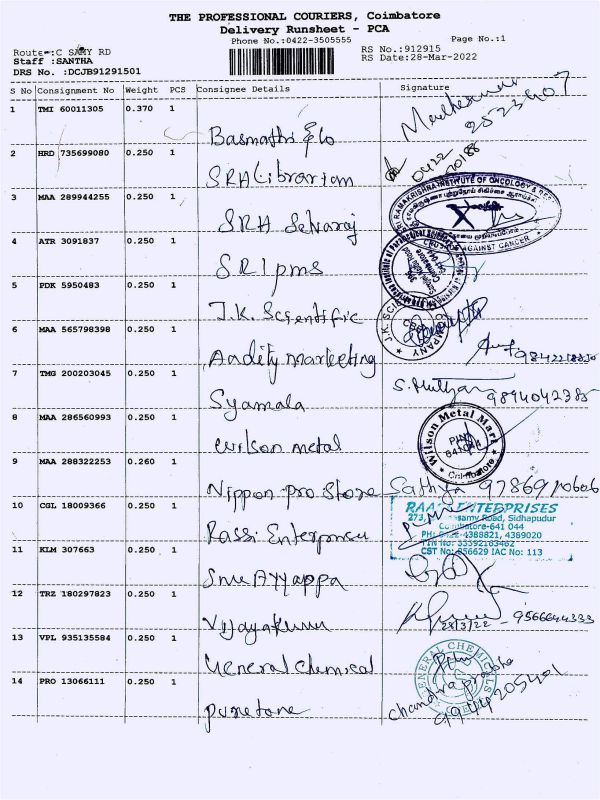 THE PROFESSIONAL COURIERS, Coimbatore
Delivery Runsheet - PCA
Phone No.:0422-3505555
Page No.:1
Route :C SAMY RD
RS No.:912915
Staff :SANTHA
RS Date:28-Mar-2022
DRS No. :DCJB91291501
S No Consignment No Weight PCS Consignee Details Signature
1 TMI 60011305 0.370 1
Basmathi &co
2523407
2 HRD 735699080 0.250 1
SRH Librarian
0422
3 MAA 289944255 0.250 1
SRH Selvaraj
SRI RAMAKRISHNA INSTITUTE OF ONCOLOGY &
AGAINST CANCER
4 ATR 3091837 0.250 1
SRIpms
5 PDK 5950483 0.250 1
J.K. Scientific
J.K. SCI
COMPANY
6 MAA 565798398 0.250 1
Aadity marketing
7 TMG 200203045 0.250 1
Syamala
9894042385
8 MAA 286560993 0.250 1
wilson metal
Wilson Metal Mart
PIN
641044
Coimbatore
9 MAA 288322253 0.260 1
Nippon pro Store
Sathya 9786910606
10 CGL 18009366 0.250 1
Rassi Enterprises
ENTERPRISES
273, samy Road, Sidhapudur
Coimbatore-641 044
PH: 0422-4388821, 4389020
TIN No: 33592163462
CST No: 856629 IAC No: 113
11 KLM 307663 0.250 1
Sree Ayyappa
12 TRZ 180297823 0.250 1
Vijayakumar
28/3/22 - 9566644333
13 VPL 935135584 0.250 1
General chemical
GENERAL CHEMICALS
14 PRO 13066111 0.250 1
puretone
chandra prabha
9944205401